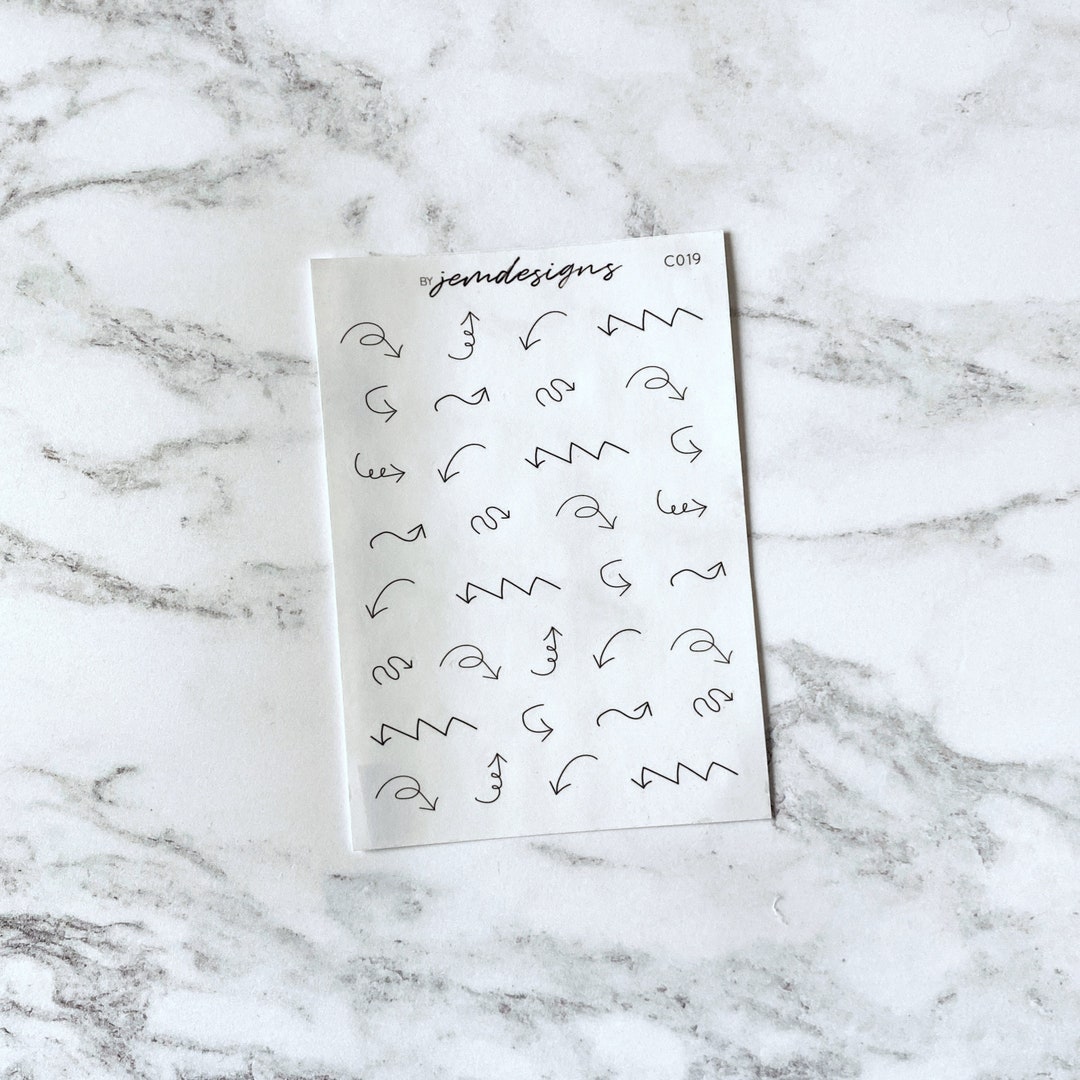 BY jemdesigns
C019